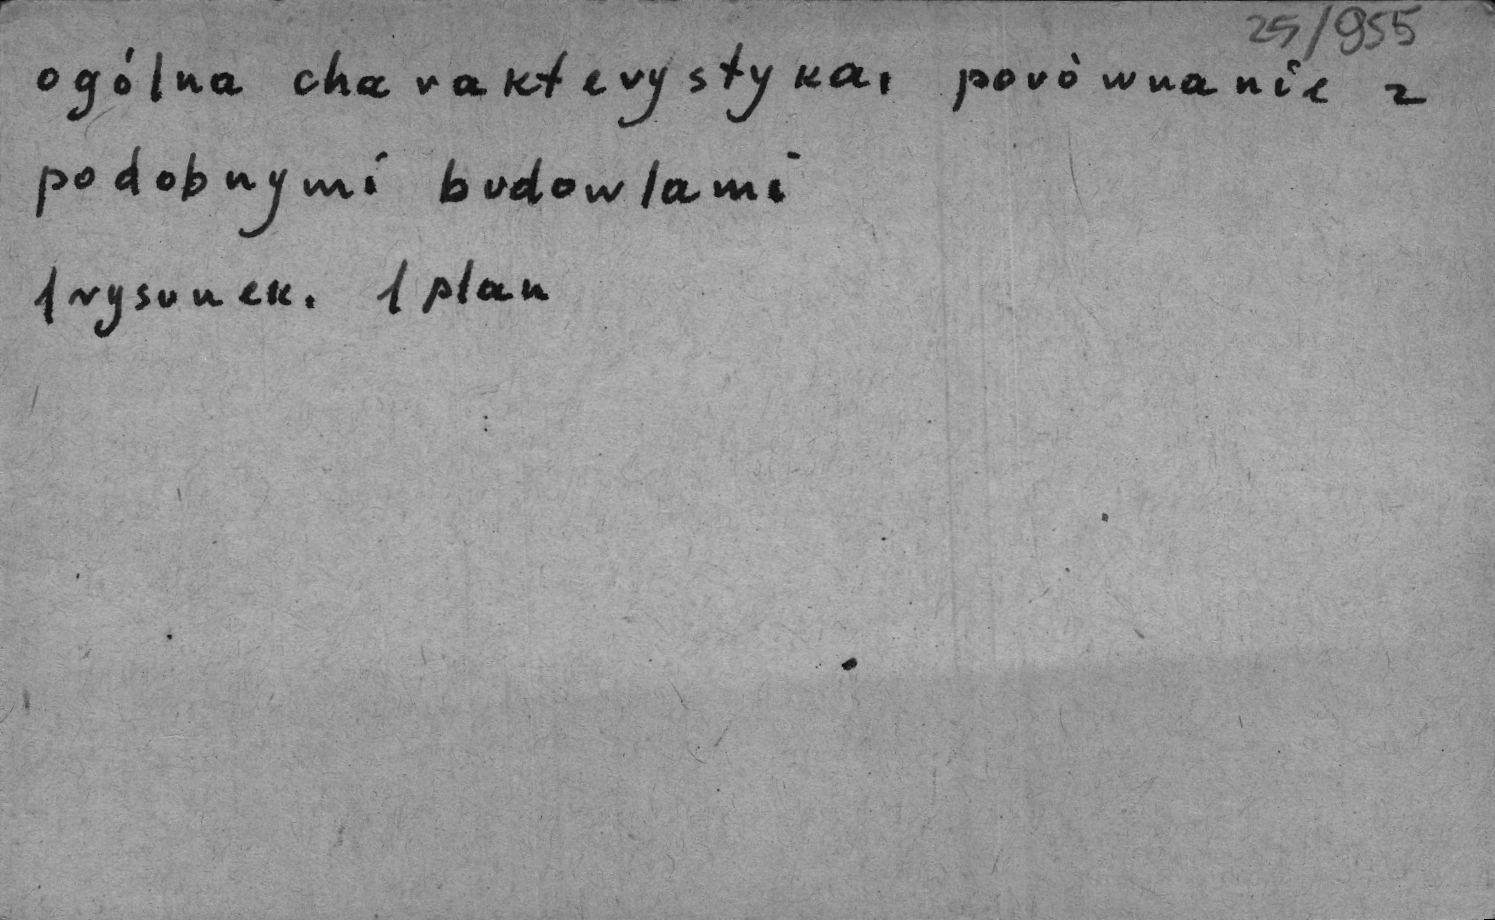 25/955
ogólna charakterystyka, porównanie z
podobnymi budowlami
1 rysunek. 1 plan